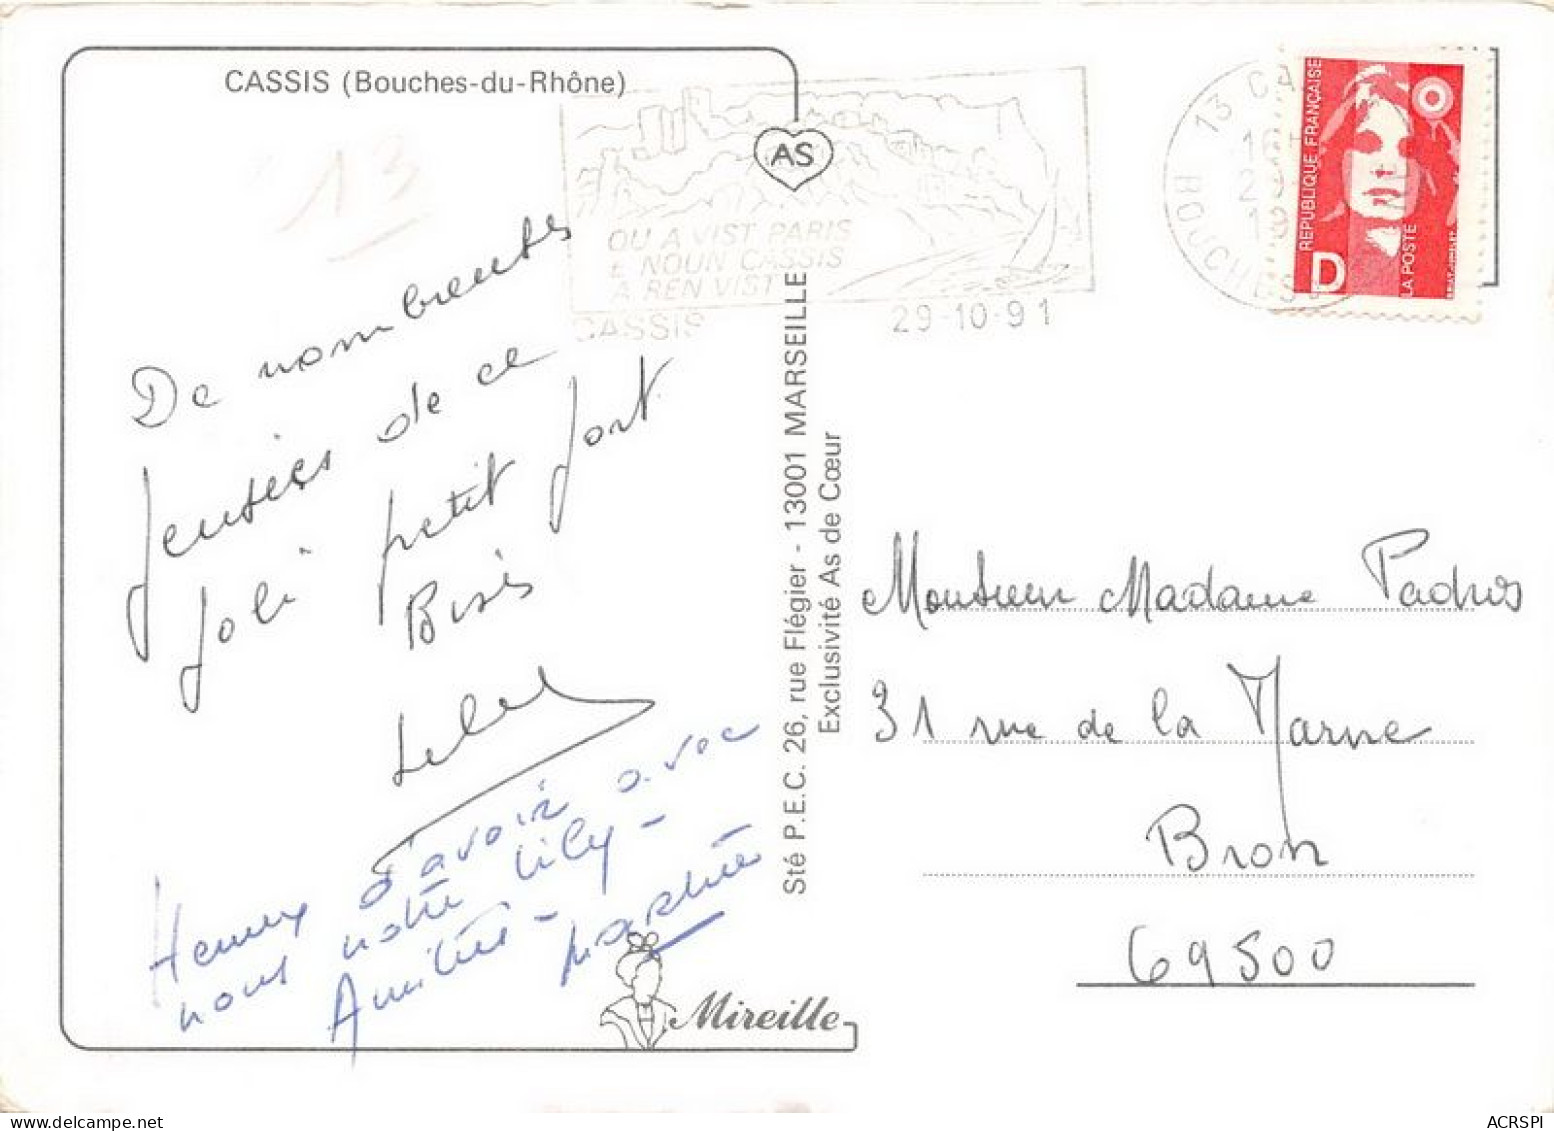 CASSIS (Bouches-du-Rhône)
13
AS
OU A VIST PARIS
E NOUN CASSIS
A REN VIST
CASSIS
29-10-91
13 CA
BOUCHES
REPUBLIQUE FRANÇAISE
LA POSTE
D
De nombreuses
pensées de ce
joli petit port
Bises
Heureux d'avoir avec
nous notre Lily -
Amitiés -
Mireille
Sté P.E.C. 26, rue Flégier - 13001 MARSEILLE
Exclusivité As de Cœur
Monsieur Madame
31 rue de la Marne
Bron
69500
ACRSPI